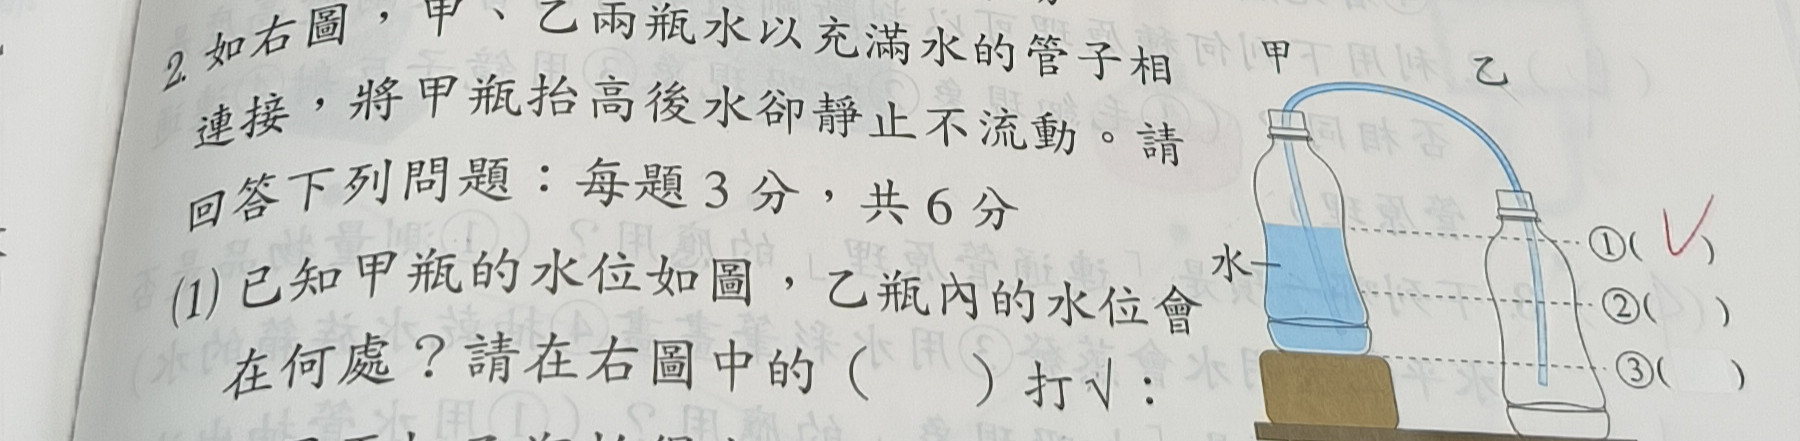 2. 如右圖，甲、乙兩瓶水以充滿水的管子相
連接，將甲瓶抬高後水卻靜止不流動。請
回答下列問題：每題3分，共6分
(1) 已知甲瓶的水位如圖，乙瓶內的水位會
在何處？請在右圖中的（　　）打√：
甲
乙
水
①( ✓ )
②( )
③( )